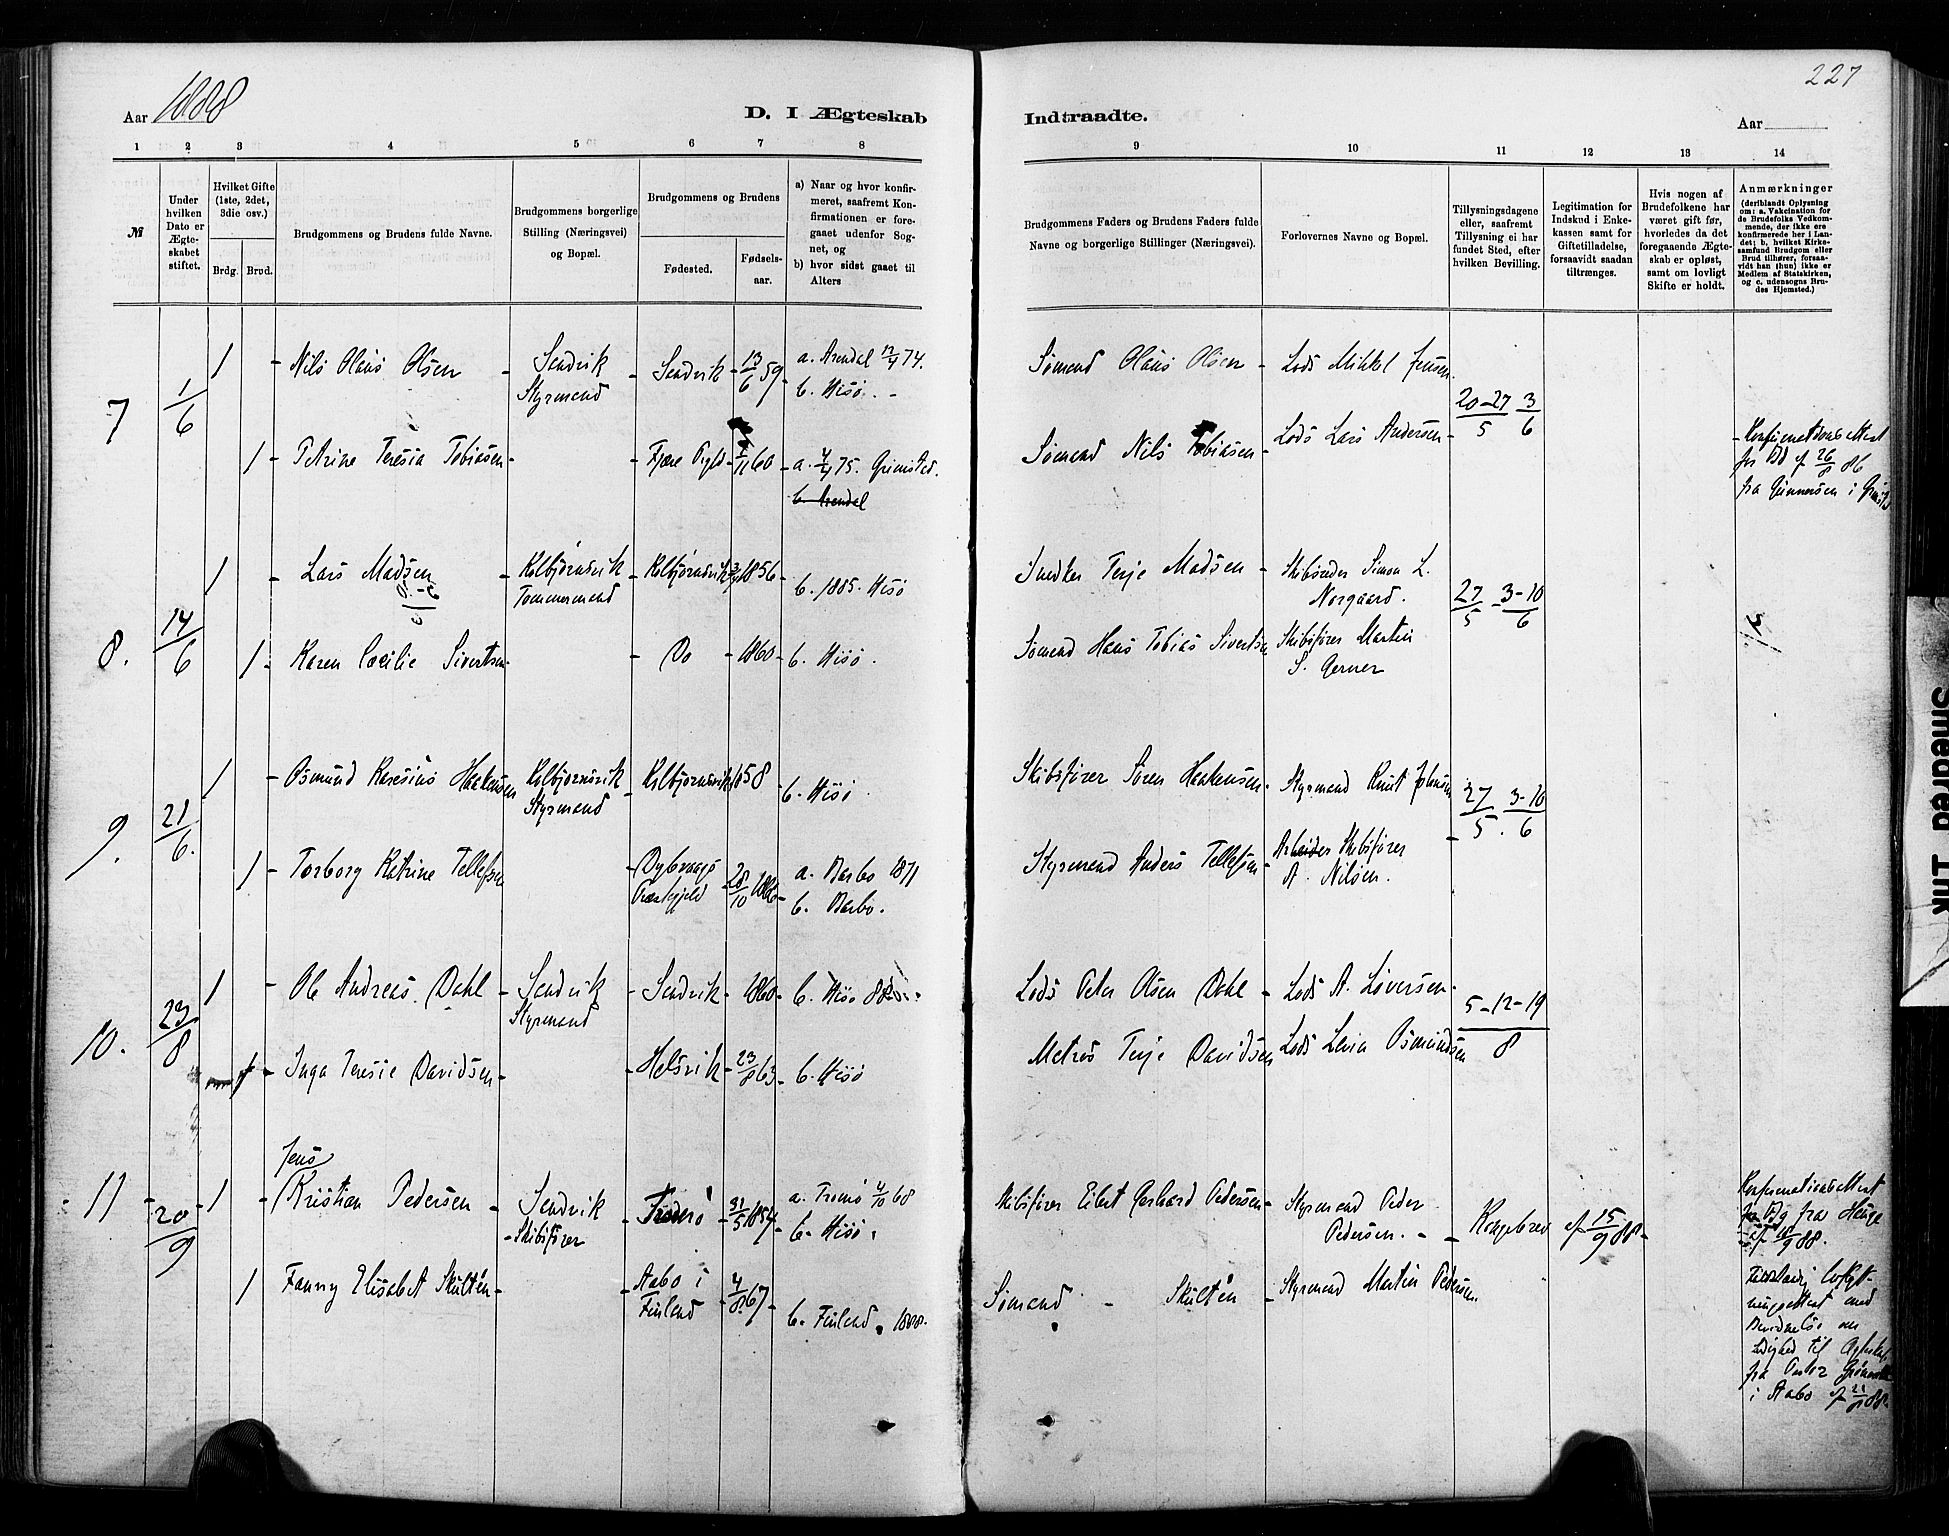 227
Aar 1888
D. I Ægteskab
Indtraadte.
Aar
1 2 3 4 5 6 7 8
9 10 11 12 13 14
№
Under hvilken Dato er Ægteskabet stiftet.
Hvilket Gifte (1ste, 2det, 3die osv.)
Brdg. Brud.
Brudgommens og Brudens fulde Navne.
Brudgommens borgerlige Stilling (Næringsvei) og Bopæl.
Brudgommens og Brudens
Fødested.
Fødselsaar.
a) Naar og hvor konfirmeret, saafremt Konfirmationen er foregaaet udenfor Sognet, og
b) hvor sidst gaaet til Alters
Brudgommens Faders og Brudens Faders fulde Navne og borgerlige Stillinger (Næringsvei).
Forlovernes Navne og Bopæl.
Tillysningsdagene eller, saafremt Tillysning ei har fundet Sted, efter hvilken Bevilling.
Legitimation for Indskud i Enkekassen samt for Giftetilladelse, forsaavidt saadan tiltrænges.
Hvis nogen af Brudefolkene har været gift før, hvorledes da det foregaaende Ægteskab er opløst, samt om lovligt Skifte er holdt.
Anmærkninger (deriblandt Oplysning om: a. Vakcination for de Brudefolks Vedkommende, der ikke ere konfirmerede her i Landet; b. hvilket Kirkesamfund Brudgom eller Brud tilhører, forsaavidt han (hun) ikke er Medlem af Statskirken, og c. udensogns Brudes Hjemsted.)
7 1/6 1 - Nils Olaus Olsen - Sandvik Styrmand - Sandvik - 13/6 59 - a. Arendal 74. b. Hisö. - Sømand Olaus Olsen - Lods Mikkel Jensen. 20-27/5 3/6
1 - Petrine Teresia Tobiasen - Fjære Prgld - /11 60 - a. 75. Grimstad. b. Arendal Sømand Nils Tobiasen - Lods Lars Andersen - Konfirmationsattest for Bd af 26/8 86 fra Gunnersen i
8. 14/6 1 - Lars Madsen - Kolbjörnsvik Tømmermand - Kolbjörnsvik 1856 - b. 1885. Hisö Snedker Terje Madsen - Skibsreder Simon L. Norgaard. 27/5 - 3-10/6
1 - Karen Cecilie Sivertsen - - Do - 1860 - b. Hisö. Sømand Hans Tobias Sivertsen Skibsfører Martin S. Gerner
9. 21/6. 1 - Osmund Haakensen Kolbjørnsvik Styrmand - Kolbjørnsvik 1858 b. Hisö. Skibsfører Søren Haakensen - Styrmand Knut Johnsen 27/5. 3-10/6
1 - Torborg Katrine Tellefsen - Dybvaags Præstegjeld - 28/10 - a. Barbo 1871 b. Barbo. Styrmand Anders Tellefsen - Arbeider Skibsfører A. Nilsen.
10. 23/8 1 - Ole Andreas Dahl - Sandvik Styrmand - Sandvik - 1860 - b. Hisö Lods Peter Olsen Dahl - Lods A. Siversen - 5-12-19/8
1 - Inga Teresie Davidsen - - Helsvik - 23/8 63 - b. Hisö Matros Terje Davidsen Lods Osmundsen
11 - 20/9 - 1 - Jens Kristian Pedersen - Sandvik - Skibsfører - Tromö - 31/5 1854 - a. Tromö 4/10 68 b. Hisö. Skibsfører Eibet Gerhard Pedersen - Styrmand Peder Pedersen. - Kongebrev af 15/9 88 - Konfirmationsattest for Bdg fra Hauge af /9 88.
1 Fanny Elisabet Skultén - - Aabo i Finland - 4/8 67 - b. Finland. 1888. Sømand - Skultén - Styrmand Martin Pedersen. Fuldstændig med om Ledighed til fra i Aabo af 21/8 88.
Smedrød Ink